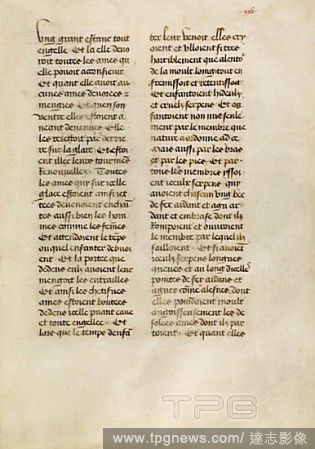 Ung grant estanc tout
engelle Et la elle devo
roit toutes les ames qu
elle povoit aconsieuir
Et quant elle avoit au
cunes ames devorees z
mengies Et que en son
ventre elles estoient a
neant devenues Elle
les reiettoit par derrie
re sur la glace Et estoi
ent illec leurs tourmens
Renouvelles Toutes
les ames qui sur icelle
glace estoient ainsi iet
tees devenoient enchai
tes aussi bien les hom
mes comme les femes
Et attendoient le teps
ouquel enfanter devoi
ent Et la portee que
dedens eulx avoient leur
mengoit les entrailles
Et ainsi les chetifves
ames estoient boutees
dedens icelle puant eaue
et toute engellee Et
lors que le temps denfa
ter leur venoit elles cry
oient et ulloient si tres
horriblement que alento
de la moult long tout en
fremissoit et retentissoit
Et enfantoient hideulx
et crueulx serpens Et es
fantoient non mie seule
ment par le membre que
nature a ordonne ad ce
maix aussi par les bras
et par les pies Et par
tous les membres yssoi
ent iceulx serpens qui
avoient chascun ung bec
de fer ardant et agu ar
dant et embrase dont ilz
Rompoient et ouvroient
le membre par lequel ilz
sailloient Et si avoient
iceulx serpens longues
queues et au long dicelle
pointes de fer ardans et
agues come alesnes dont
elles poindoient moult
angoisseusement les de
solees ames dont ilz par
toient Et quant elles
TPG
www.tpgnews.com/達志影像